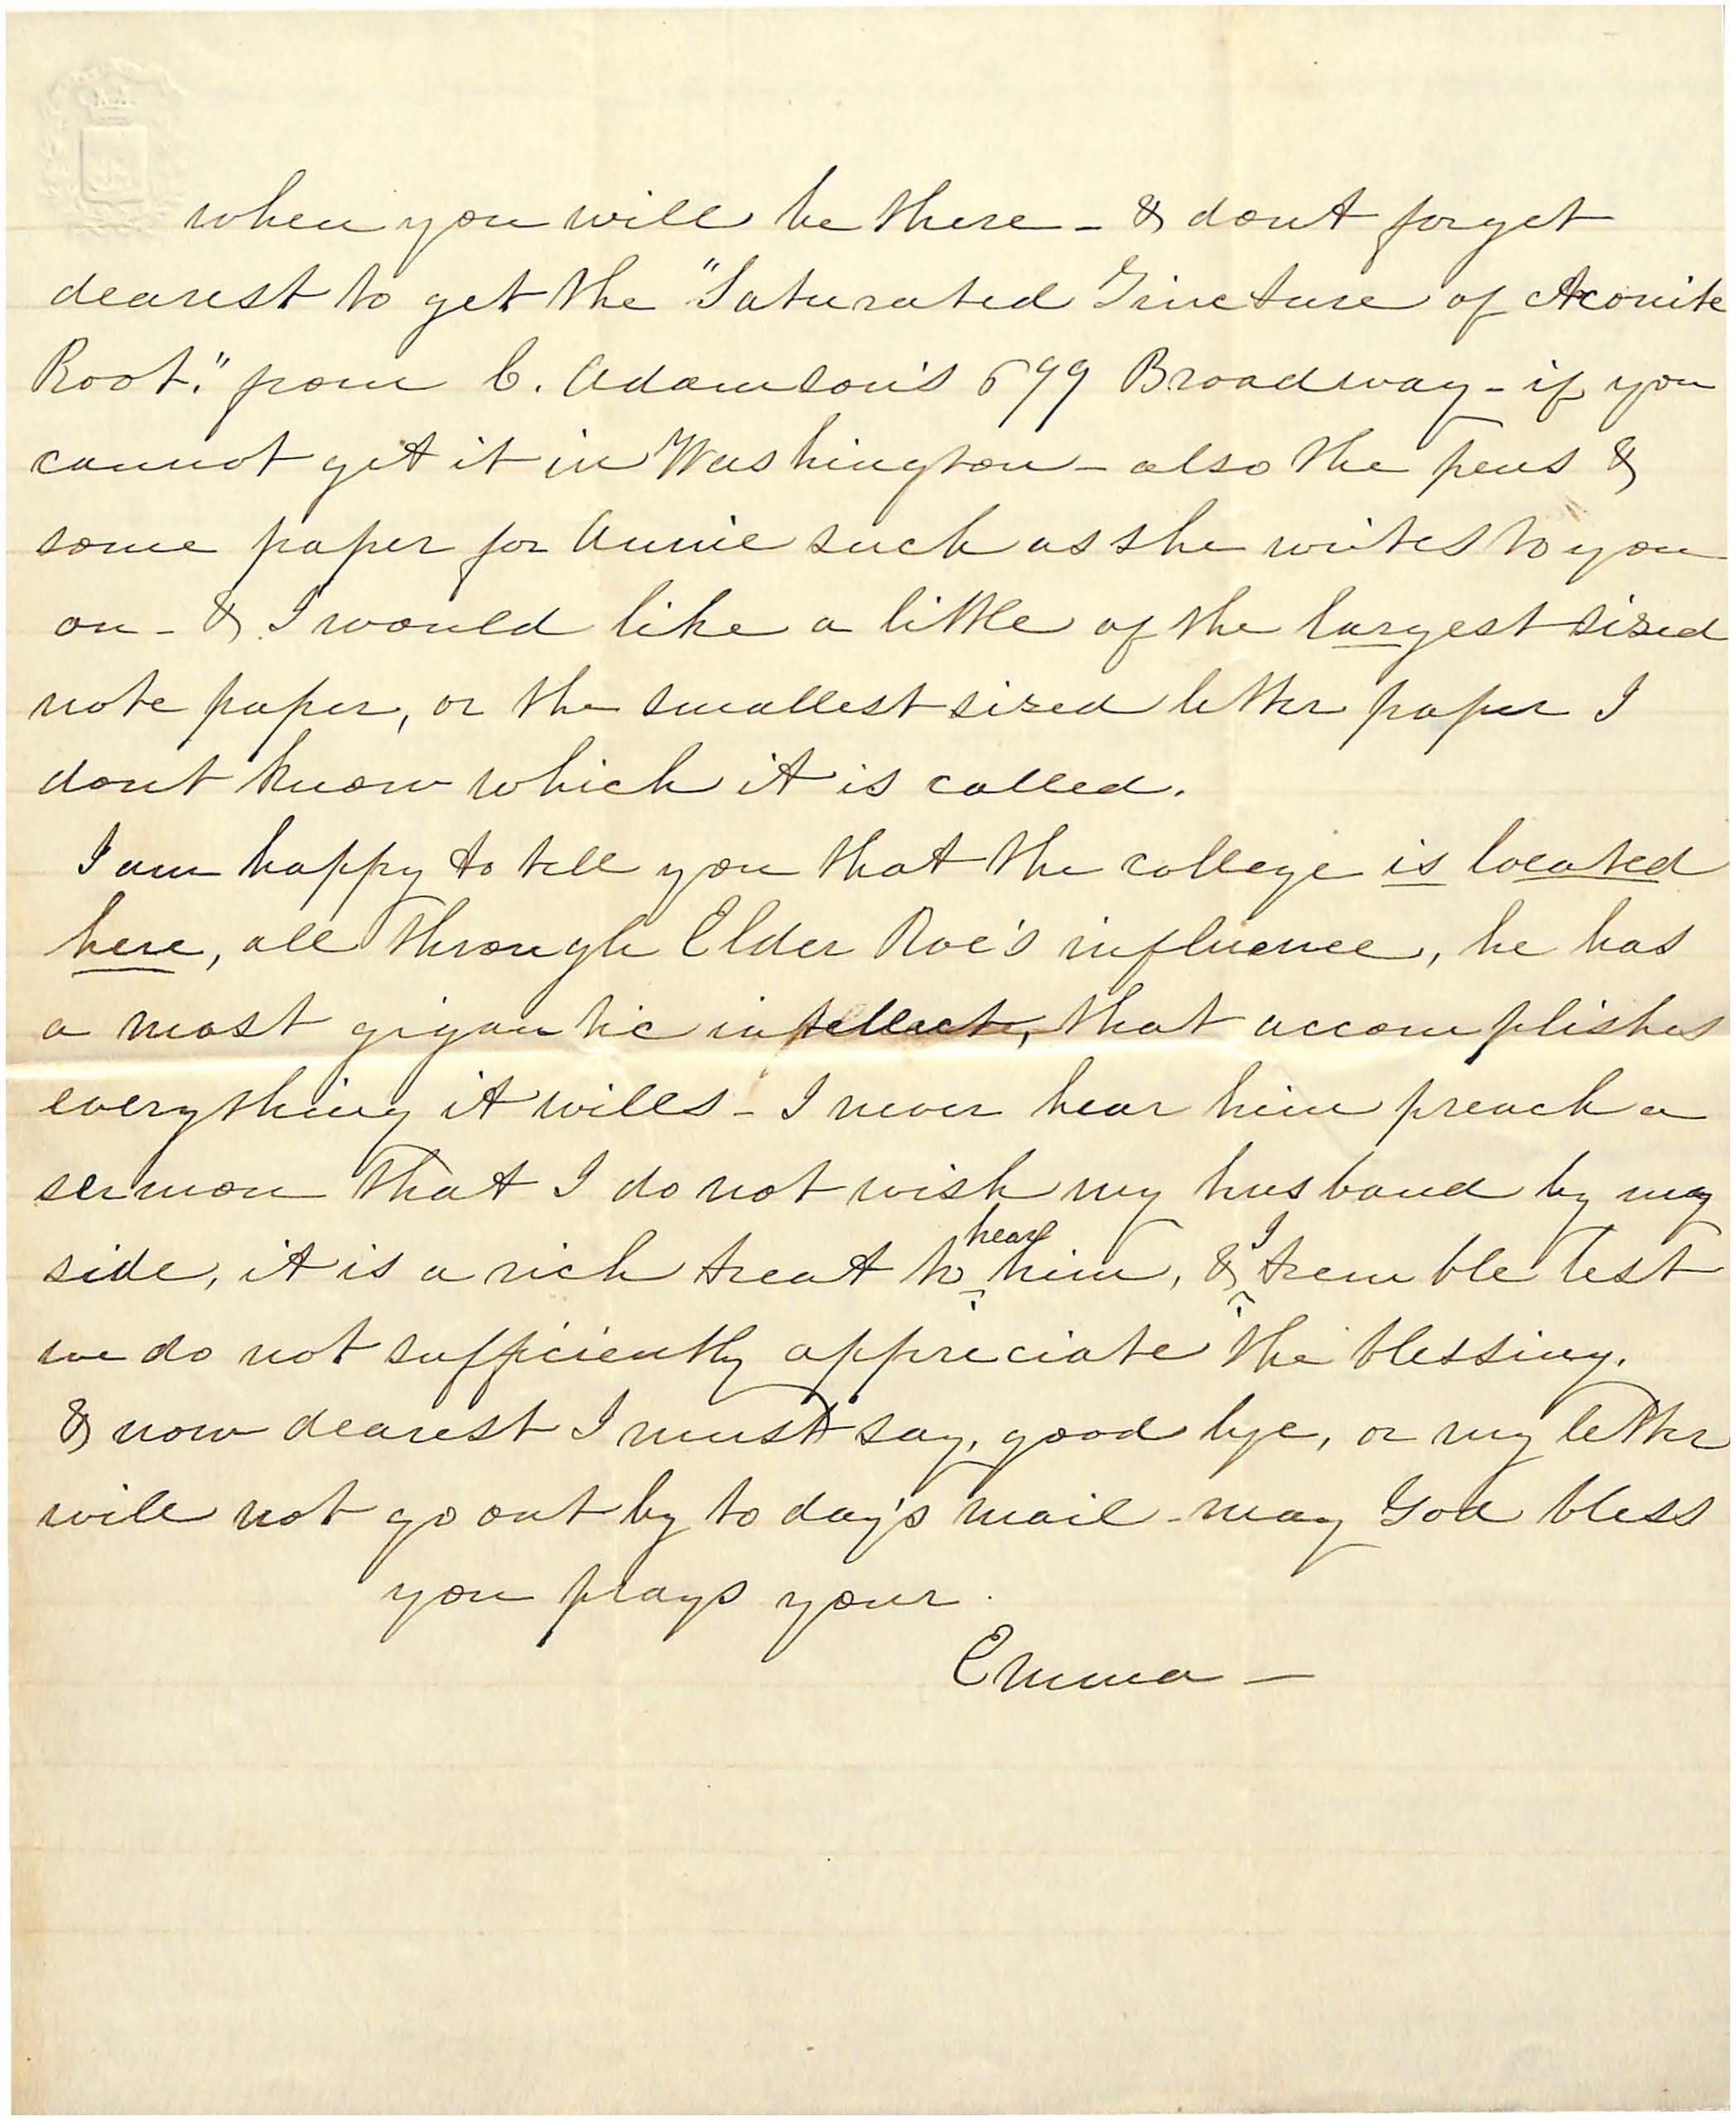 when you will be there - & dont forget
dearest to get the "Saturated Tincture of Aconite
Root." from C. Adamson's 699 Broadway - if you
cannot get it in Washington - also the pens &
some paper for Annie such as she writes to you
on - & I would like a little of the largest sized
note paper, or the smallest sized letter paper I
dont know which it is called.
I am happy to tell you that the college is located
here, all through Elder Roe's influence, he has
a most gigantic intellect, that accomplishes
everything it wills - I never hear him preach a
sermon that I do not wish my husband by my
side, it is a rich treat to hear him, & I tremble lest
we do not sufficiently appreciate the blessing.
& now dearest I must say, good bye, or my letter
will not go out by to day's mail - may God bless
you prays your
Emma -